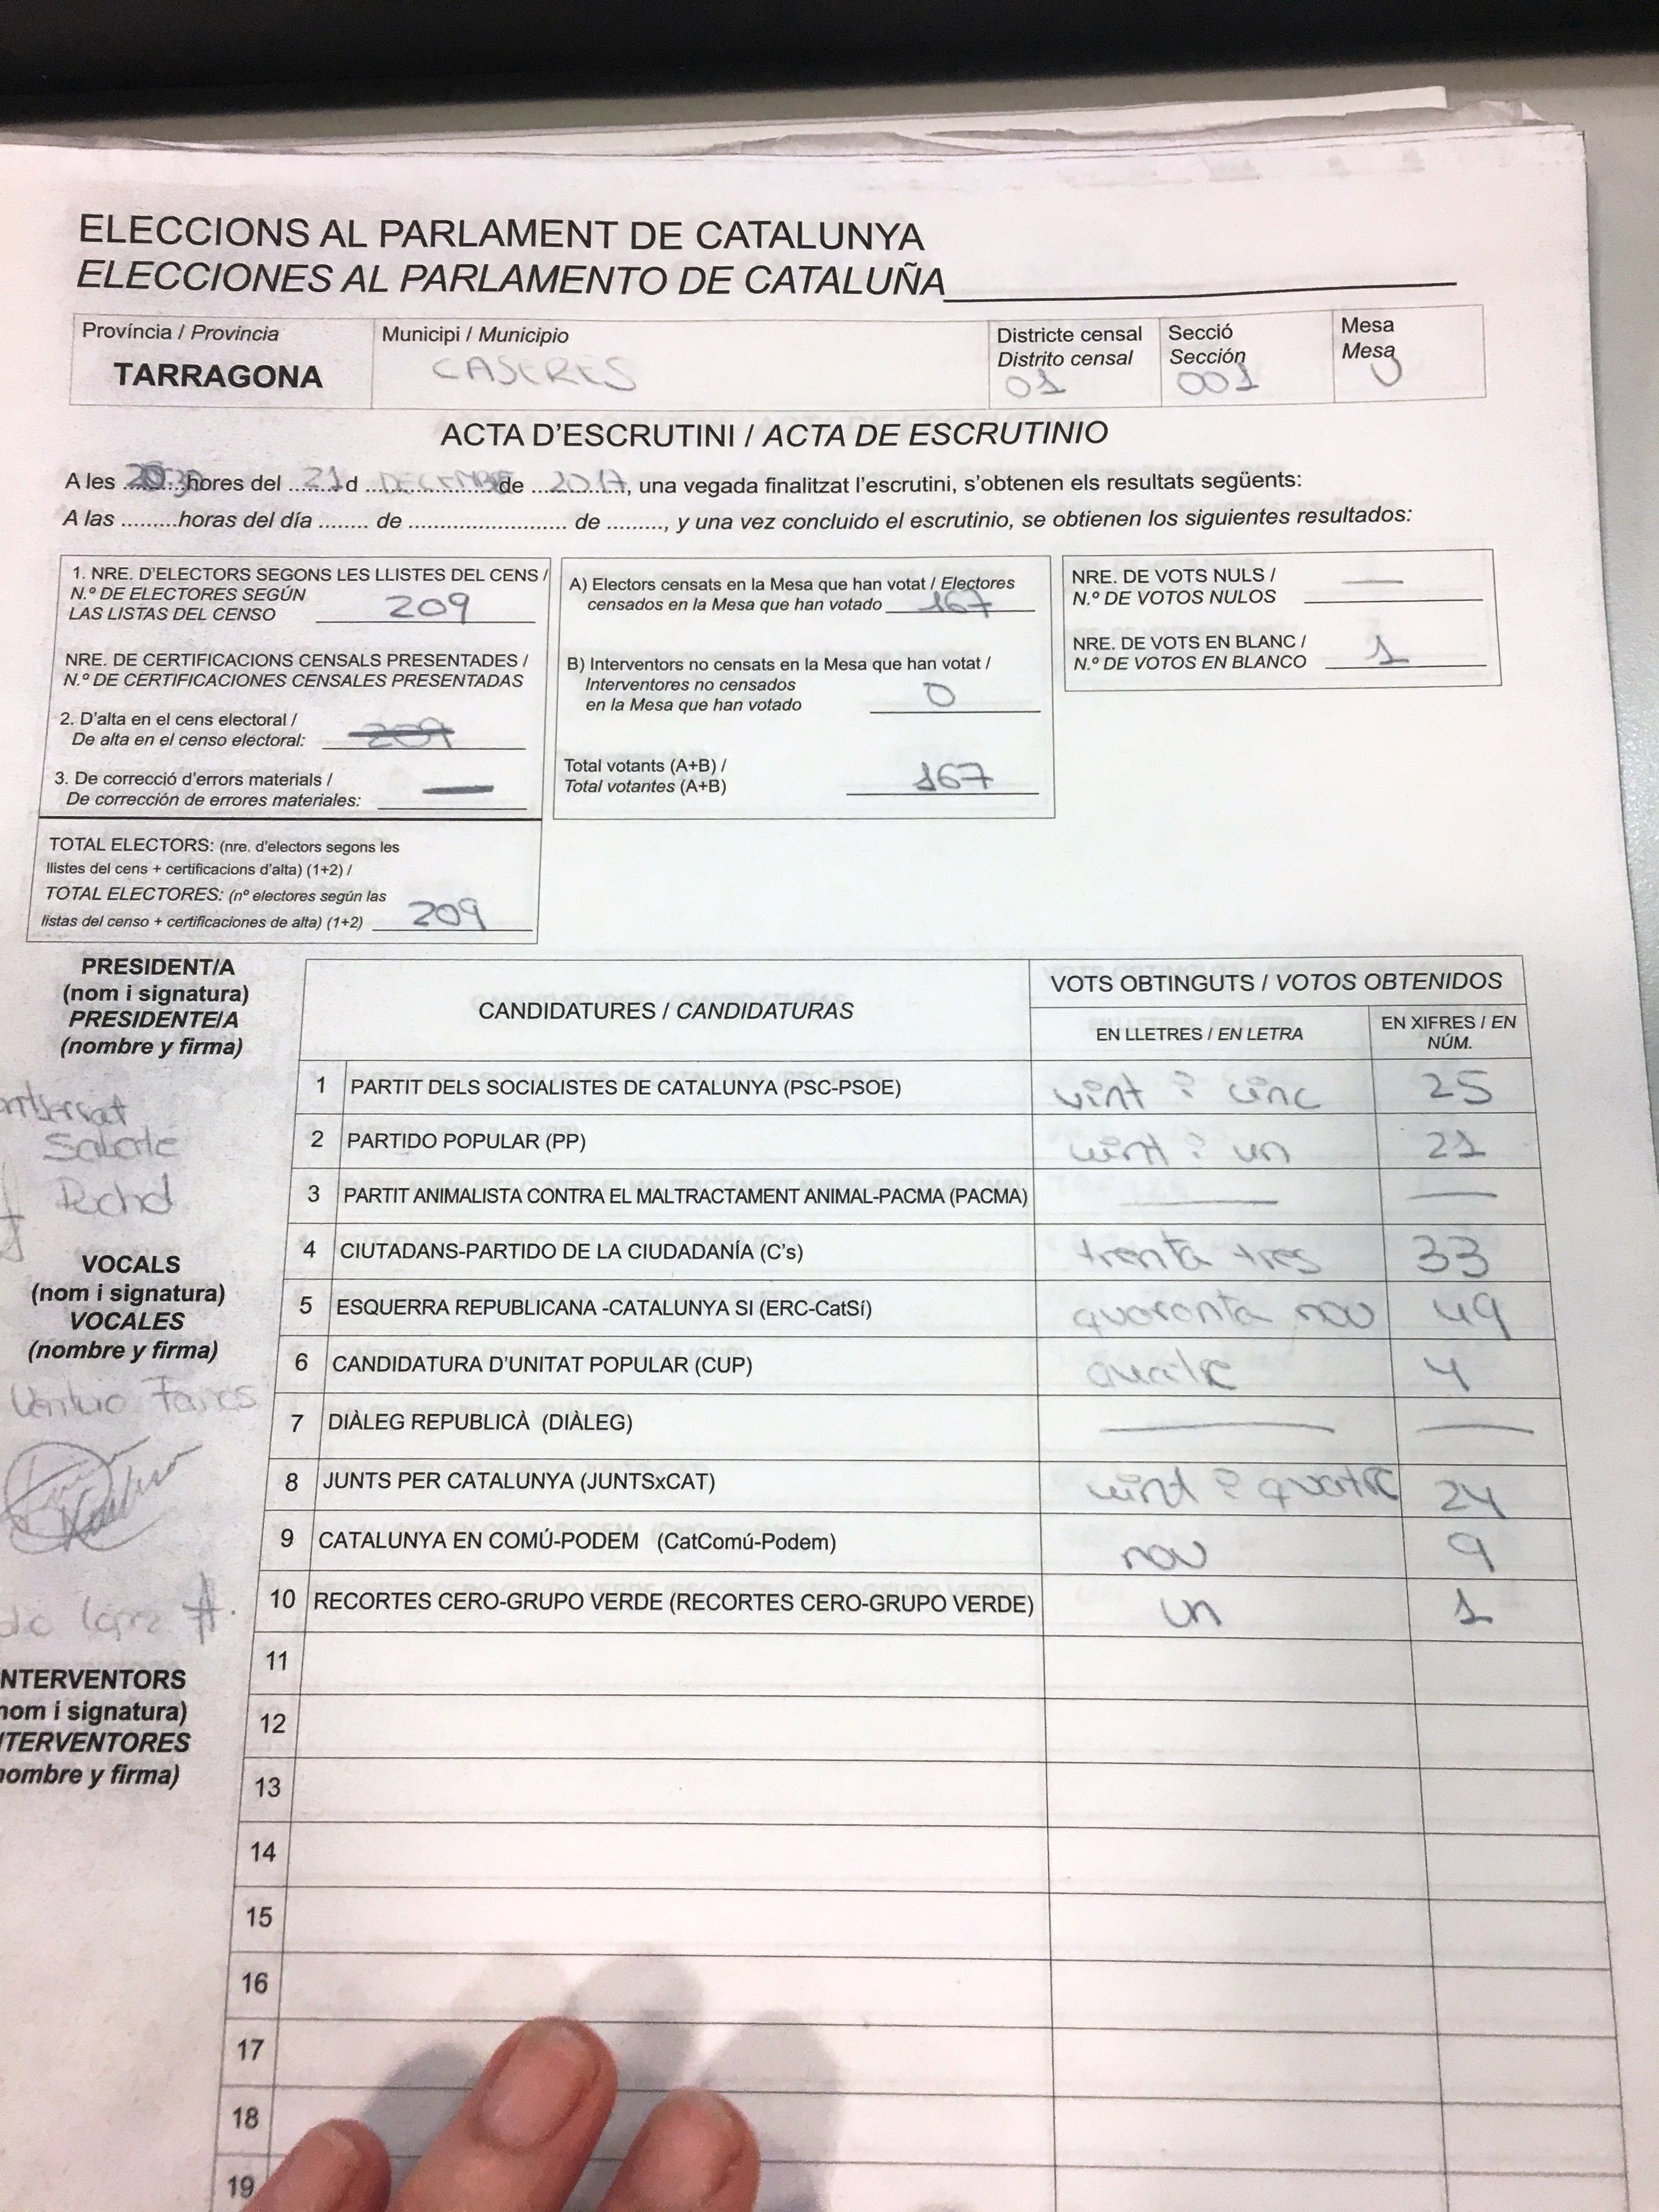 ELECCIONS AL PARLAMENT DE CATALUNYA
ELECCIONES AL PARLAMENTO DE CATALUÑA
Província / Provincia
TARRAGONA
Municipi / Municipio
CASERES
Districte censal
Distrito censal
01
Secció
Sección
001
Mesa
Mesa
U
ACTA D'ESCRUTINI / ACTA DE ESCRUTINIO
A les ........ hores del 21 d DECEMBRE de 2017, una vegada finalitzat l'escrutini, s'obtenen els resultats següents:
A las .........horas del día ........ de ........................ de ........., y una vez concluido el escrutinio, se obtienen los siguientes resultados:
1. NRE. D'ELECTORS SEGONS LES LLISTES DEL CENS /
N.º DE ELECTORES SEGÚN
LAS LISTAS DEL CENSO 209
NRE. DE CERTIFICACIONS CENSALS PRESENTADES /
N.º DE CERTIFICACIONES CENSALES PRESENTADAS
2. D'alta en el cens electoral /
De alta en el censo electoral: 209
3. De correcció d'errors materials /
De corrección de errores materiales: —
TOTAL ELECTORS: (nre. d'electors segons les
llistes del cens + certificacions d'alta) (1+2) /
TOTAL ELECTORES: (nº electores según las
listas del censo + certificaciones de alta) (1+2) 209
A) Electors censats en la Mesa que han votat / Electores
censados en la Mesa que han votado 167
B) Interventors no censats en la Mesa que han votat /
Interventores no censados
en la Mesa que han votado 0
Total votants (A+B) /
Total votantes (A+B) 167
NRE. DE VOTS NULS /
N.º DE VOTOS NULOS —
NRE. DE VOTS EN BLANC /
N.º DE VOTOS EN BLANCO 1
PRESIDENT/A
(nom i signatura)
PRESIDENTE/A
(nombre y firma)
VOCALS
(nom i signatura)
VOCALES
(nombre y firma)
NTERVENTORS
nom i signatura)
TERVENTORES
ombre y firma)
CANDIDATURES / CANDIDATURAS
VOTS OBTINGUTS / VOTOS OBTENIDOS
EN LLETRES / EN LETRA
EN XIFRES / EN
NÚM.
1 PARTIT DELS SOCIALISTES DE CATALUNYA (PSC-PSOE) vint i cinc 25
2 PARTIDO POPULAR (PP) vint i un 21
3 PARTIT ANIMALISTA CONTRA EL MALTRACTAMENT ANIMAL-PACMA (PACMA) — —
4 CIUTADANS-PARTIDO DE LA CIUDADANÍA (C's) trenta tres 33
5 ESQUERRA REPUBLICANA -CATALUNYA SI (ERC-CatSí) quaranta nou 49
6 CANDIDATURA D'UNITAT POPULAR (CUP) quatre 4
7 DIÀLEG REPUBLICÀ (DIÀLEG) — —
8 JUNTS PER CATALUNYA (JUNTSxCAT) vint i quatre 24
9 CATALUNYA EN COMÚ-PODEM (CatComú-Podem) nou 9
10 RECORTES CERO-GRUPO VERDE (RECORTES CERO-GRUPO VERDE) un 1
11
12
13
14
15
16
17
18
19